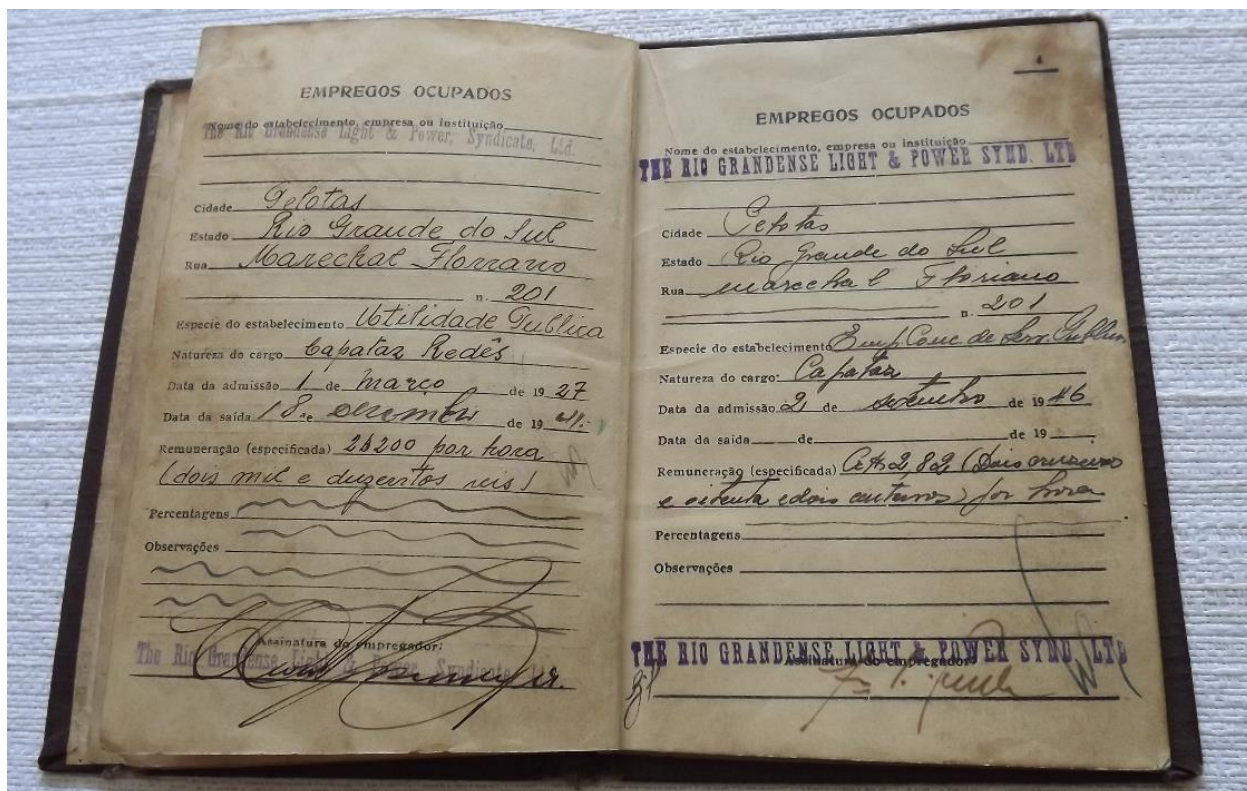 EMPREGOS OCUPADOS
Nome do estabelecimento, empresa ou instituição
The Rio Grandense Light & Power, Syndicate, Ltd.
Cidade Pelotas
Estado Rio Grande do Sul
Rua Marechal Floriano
n. 201
Especie do estabelecimento Utilidade Publica
Natureza do cargo Capataz Redês
Data da admissão 1 de março de 1927
Data da saída 18 de dezembro de 19
Remuneração (especificada) 2$200 por hora
(dois mil e duzentos reis)
Percentagens
Observações
Assinatura do empregador:
The Rio Grandense Light & Power, Syndicate, Ltd.
EMPREGOS OCUPADOS
Nome do estabelecimento, empresa ou instituição
THE RIO GRANDENSE LIGHT & POWER SYND. LTD
Cidade Pelotas
Estado Rio Grande do Sul
Rua Marechal Floriano
n. 201
Especie do estabelecimento Emp. Conc. de Serv. Publico
Natureza do cargo: Capataz
Data da admissão 2 de setembro de 1946
Data da saida de de 19
Remuneração (especificada) Cr$ 2,82 (Dois cruzeiros
e oitenta e dois centavos) por hora
Percentagens
Observações
THE RIO GRANDENSE LIGHT & POWER SYND. LTD
Assinatura do empregador: